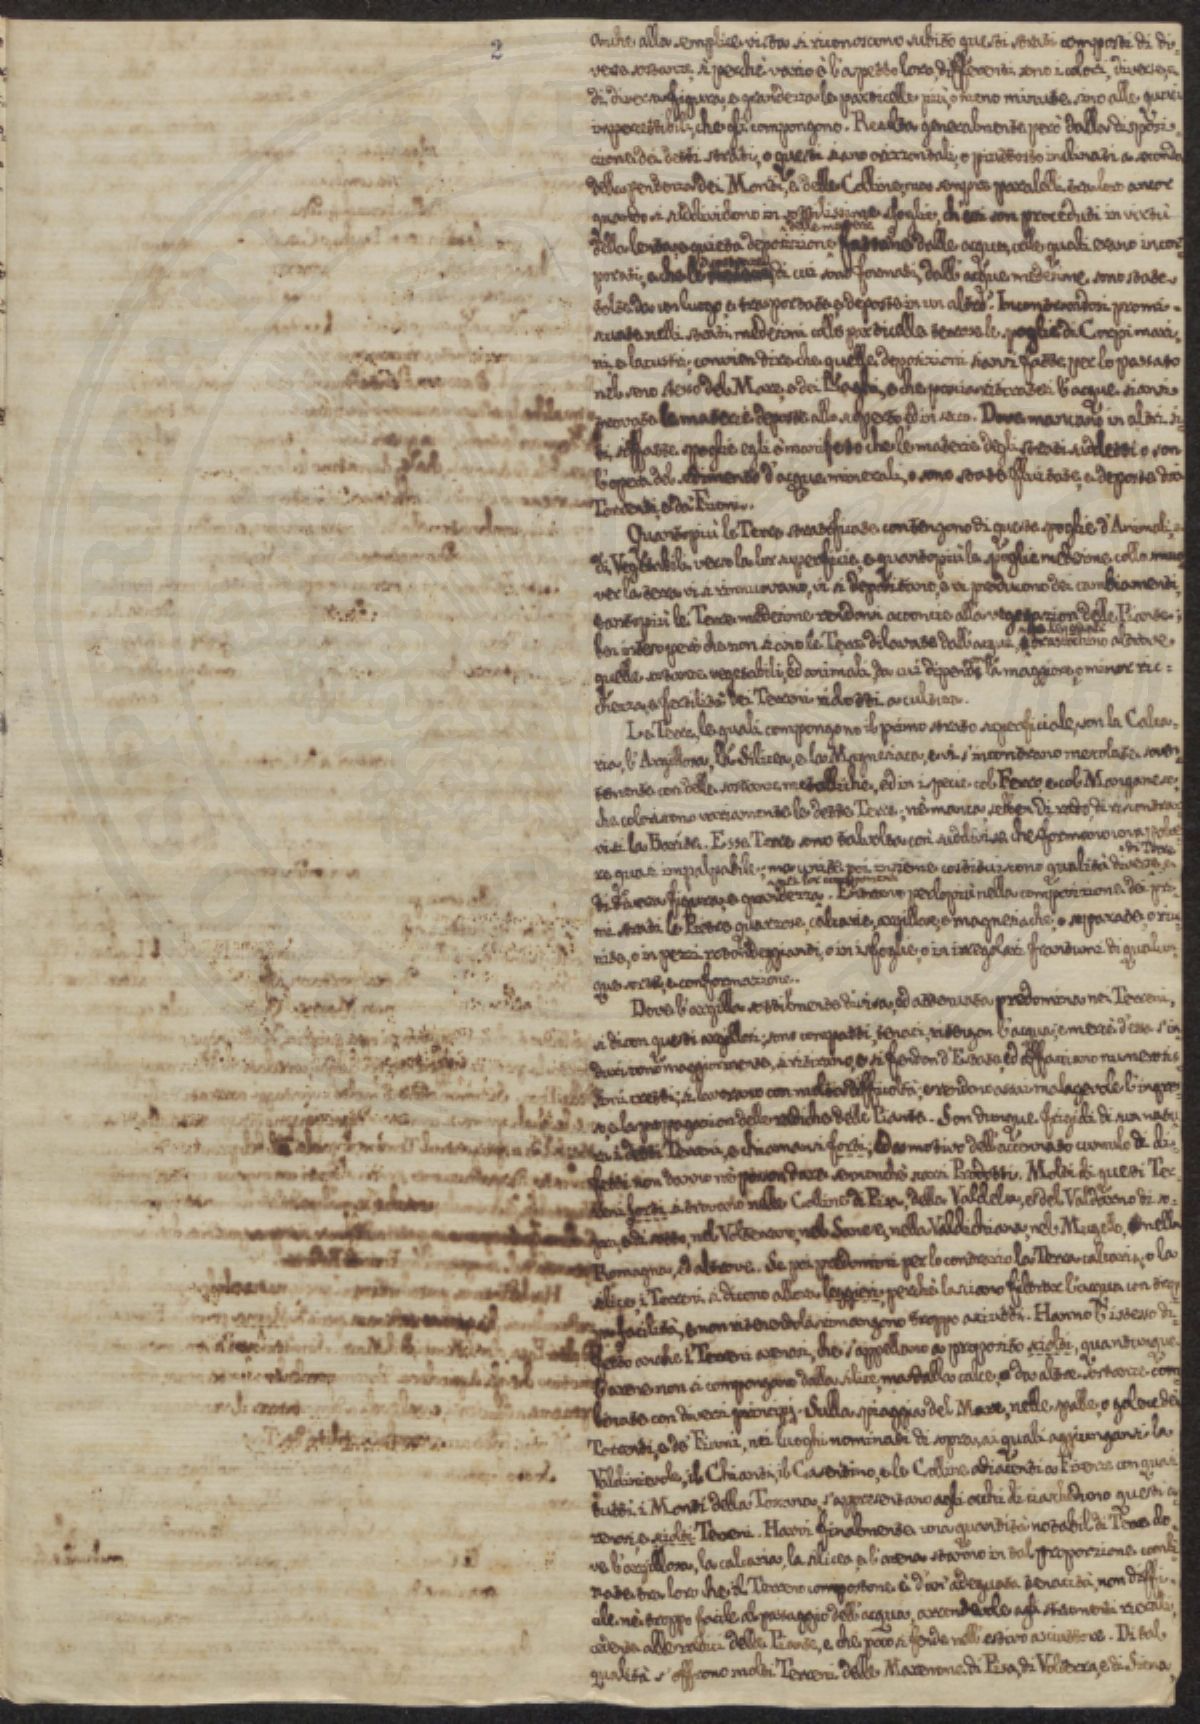 2
anche alla semplice vista si riconoscono subito questi strati composti di di-
verse sostanze, sì perchè vario è l'aspetto loro, differenti sono i colori, diverse, e
di diversa figura, e grandezza le particelle più, o meno minute, sino alle quasi
impercettibili, che gli compongono. Risulta generalmente però dalla disposi-
zione dei detti strati, o questi siano orizzontali, o piuttosto inclinati a seconda
della pendenza dei Monti, e delle Colline, ma sempre paralelli tra loro ancor
quando si suddividono in sottilissime sfoglie, ch'essi son proceduti in virtù
delle materie
della lenta, e quieta deposizione dalle acque, colle quali erano incor-
porati, e che le di cui sono formati, dall'acque medesime sono state
tolte da un luogo, e trasportate, e deposte in un altro. Incontrandosi promi-
scuate nelli strati medesimi colle particelle terrose le spoglie di Corpi mari-
ni, e lacustri, convien dire che quelle deposizioni siansi fatte per lo passato
nel seno stesso del Mare, e dei Laghi, e che poscia ritiratesi l'acque siansi
trovate le materie deposte allo scoperto ed in secco. Dove mancano in altri si-
ti siffatte spoglie egli è manifesto che le materie degli strati suddetti o son
l'opera del sedimento d'acque minerali, o sono state fluitate, e deposte da
Torrenti, e da Fiumi.
Quanto più le Terre stratificate contengono di queste spoglie d'Animali, e
di Vegetabili verso la lor superficie, e quanto più le spoglie medesime collo muo
ver la terra vi si rinnuovano, vi si depositano, e vi producono dei cambiamenti,
tanto più le Terre medesime rendonsi acconcie alla vegetazion delle Piante;
ben inteso però che non siano le Terre dilavate dall'acque, e trasportino altrove
quelle sostanze vegetabili, ed animali, da cui dipende la maggiore, o minor ric-
chezza, e fertilità dei Terreni ridotti a cultura.
Le Terre, le quali compongono il primo strato superficiale, son la Calca-
ria, l'Argillosa, la Silicea, e la Magnesiaca, e vi s'incontrano mescolate soven-
temente con delle sostanze metalliche, ed in ispecie col Ferro, e col Manganese,
che coloriscono variamente le dette Terre; nè manca, sebben di rado, di riscontrar
visi la Barite. Esse Terre sono talvolta così suddivise che formano una polve
re quasi impalpabile; ma unite poi insieme costituiscono qualità diverse, e
di Terre
di diversa figura, e grandezza. Entrano perlopiù nella composizione dei pri-
mi strati le Pietre quarzose, calcarie, argillose, e magnesiache, o separate, o riu
nite, o in pezzi rotondeggianti, o in isfoglie, o in irregolari frantumi di qualun-
que sorte, e conformazione.
Dove l'argilla sottilmente divisa, ed attenuata predomina nei Terreni,
si dicon questi argillosi; sono compatti, tenaci, ritengon l'acqua, e mercè d'essa s'in
duriscono maggiormente, si ristringono, e si fendon d'Estate, ed affacciano numerosis
simi cretti; si lavorano con molta difficoltà, e rendono assai malagevole l'ingres-
so, e la propagazion delle radiche delle Piante. Son dunque frigidi di sua natu
ra i detti Terreni, e chiamansi forti; e a motivo dell'accennato cumulo di di-
fetti non danno nè posson dare senonchè scarsi Prodotti. Molti di questi Ter-
reni forti si trovano nelle Colline di Pisa, della Valdelsa, e del Valdarno di so-
pra, e di sotto, nel Volterrano, nel Sanese, nella Valdichiana, nel Mugello, e nella
Romagna, ed altrove. Se poi predomini per lo contrario la Terra calcaria, o la
silice, i Terreni si dicono allora leggieri, perchè lasciano filtrar l'acqua con trop
pa facilità, e non ritenendola rimangono troppo asciutti. Hanno l'istesso di-
fetto anche i Terreni arenosi, che s'appellano a proposito sciolti, quantunque
l'arene non si compongano dalla silice, ma dalla calce, o da altre sostanze com
binate con diversi principj. Sulla spiaggia del Mare, nelle spalle, o golene dei
Torrenti, e de' Fiumi, nei luoghi nominati di sopra, ai quali aggiungansi la
Valdinievole, il Chianti, il Casentino, e le Colline adiacenti a Firenze con quasi
tutti i Monti della Toscana, s'appresentano agli occhi di ciascheduno questi a-
renosi, e sciolti Terreni. Havvi finalmente una quantità notabil di Terre do
ve l'argillosa, la calcaria, la silicea, e l'arena stanno in tal proporzione combi
nate tra loro che il Terreno compostone è d'un'adeguata tenacità, non diffi-
cile nè troppo facile al passaggio dell'acqua, arrendevole agli strumenti rurali,
cedente alle radici delle Piante, e che poco si fende nell'estivo asciuttore. Di tal
qualità s'offrono molti Terreni delle Maremme di Pisa, di Volterra, e di Siena,